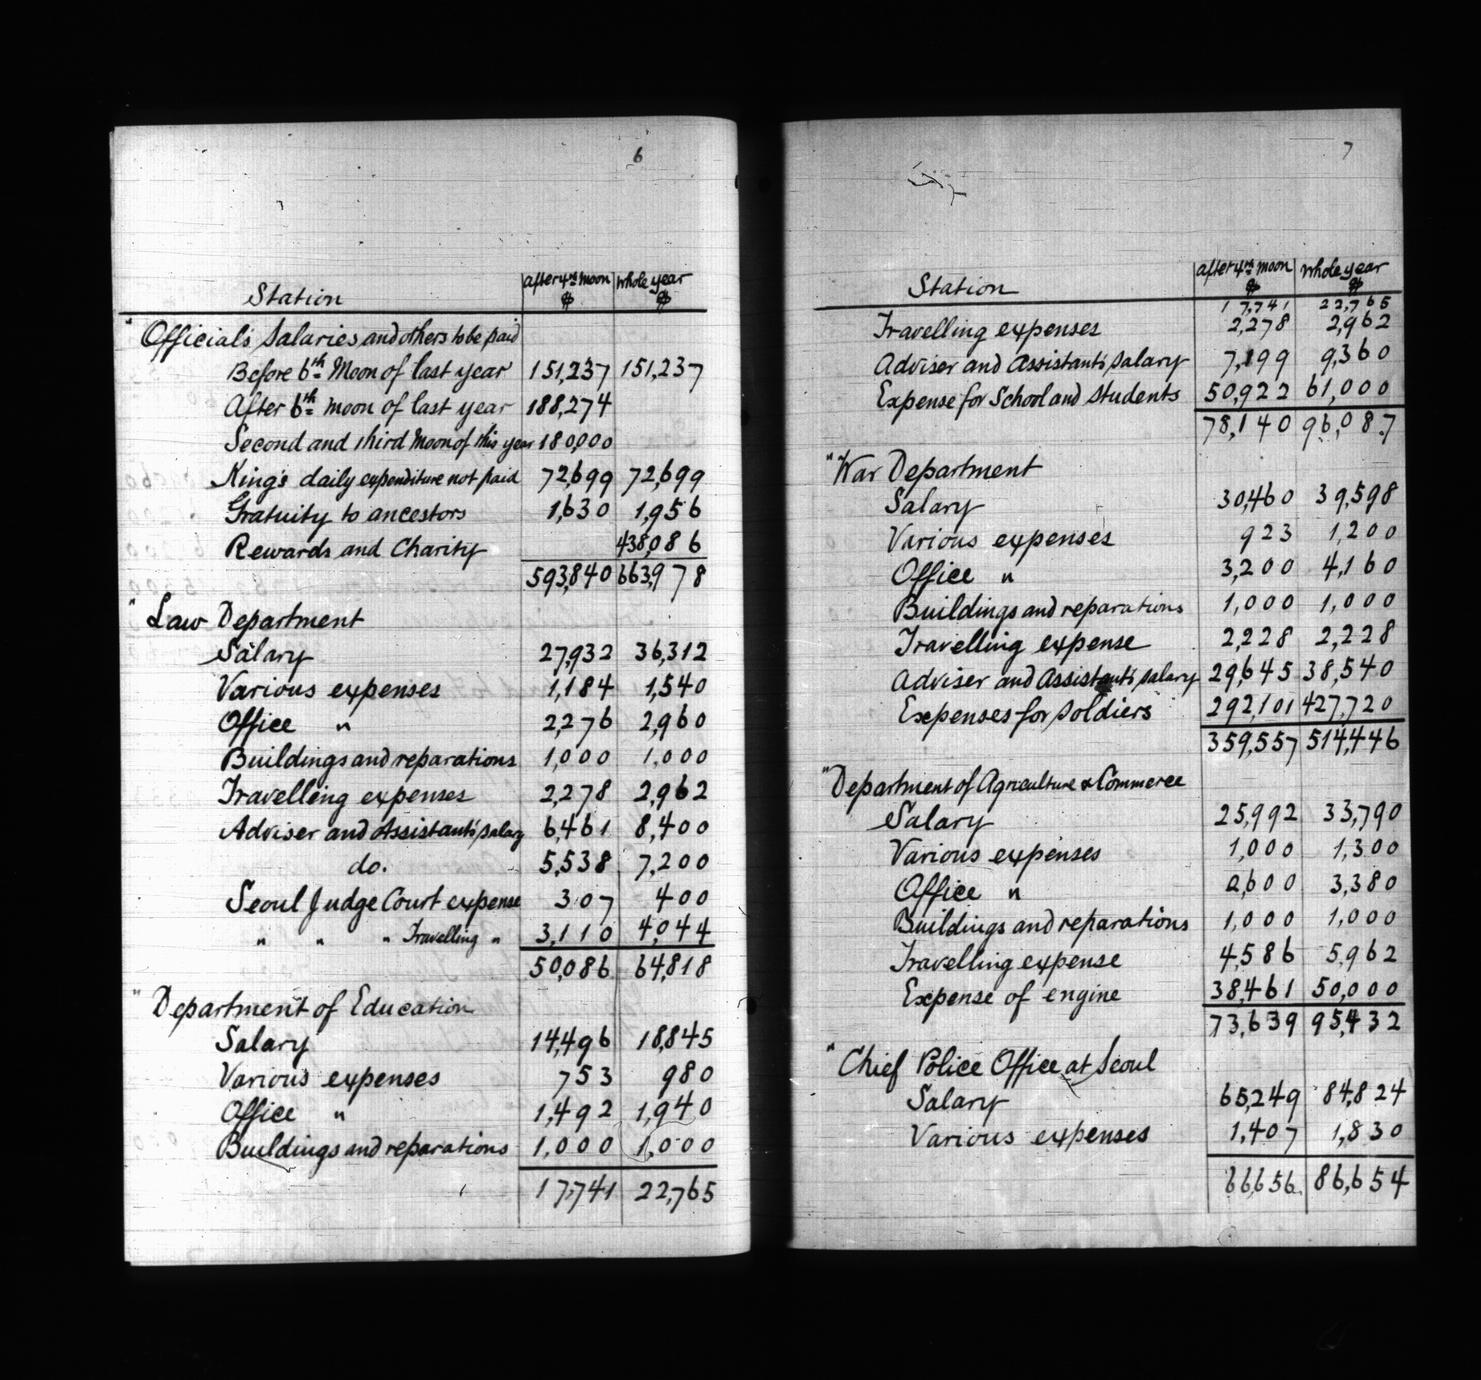 6
Station after 4th moon $ whole year $
" Official's Salaries and others to be paid
Before 6th Moon of last year 151,237 151,237
After 6th moon of last year 188,274
Second and third Moon of this year 180,000
King's daily expenditure not paid 72,699 72,699
Gratuity to ancestors 1,630 1,956
Rewards and Charity 438,086
593,840 663,978
" Law Department
Salary 27,932 36,312
Various expenses 1,184 1,540
Office " 2,276 2,960
Buildings and reparations 1,000 1,000
Travelling expenses 2,278 2,962
Adviser and Assistant's salary 6,461 8,400
do. 5,538 7,200
Seoul Judge Court expense 307 400
" " " Travelling " 3,110 4,044
50,086 64,818
" Department of Education
Salary 14,496 18,845
Various expenses 753 980
Office " 1,492 1,940
Buildings and reparations 1,000 1,000
17,741 22,765
7
Station after 4th moon $ whole year $
17,741 22,765
Travelling expenses 2,278 2,962
Adviser and Assistant's salary 7,199 9,360
Expense for School and students 50,922 61,000
78,140 96,087
" War Department
Salary 30,460 39,598
Various expenses 923 1,200
Office " 3,200 4,160
Buildings and reparations 1,000 1,000
Travelling expense 2,228 2,228
Adviser and Assistant's salary 29,645 38,540
Expenses for soldiers 292,101 427,720
359,557 514,446
" Department of Agriculture & Commerce
Salary 25,992 33,790
Various expenses 1,000 1,300
Office " 2,600 3,380
Buildings and reparations 1,000 1,000
Travelling expense 4,586 5,962
Expense of engine 38,461 50,000
73,639 95,432
" Chief Police Office at Seoul
Salary 65,249 84,824
Various expenses 1,407 1,830
66,656 86,654